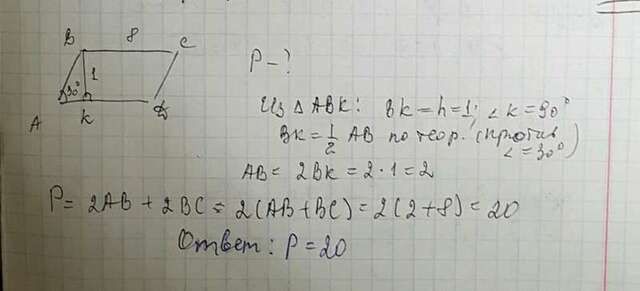 B 8 C
1
30°
A K D
P - ?
Из Δ ABK: BK = h = 1; ∠K = 90°
BK = 1/2 AB по теор. (против
∠ = 30°)
AB = 2BK = 2 · 1 = 2
P = 2AB + 2BC = 2(AB + BC) = 2(2+8) = 20
Ответ: P = 20